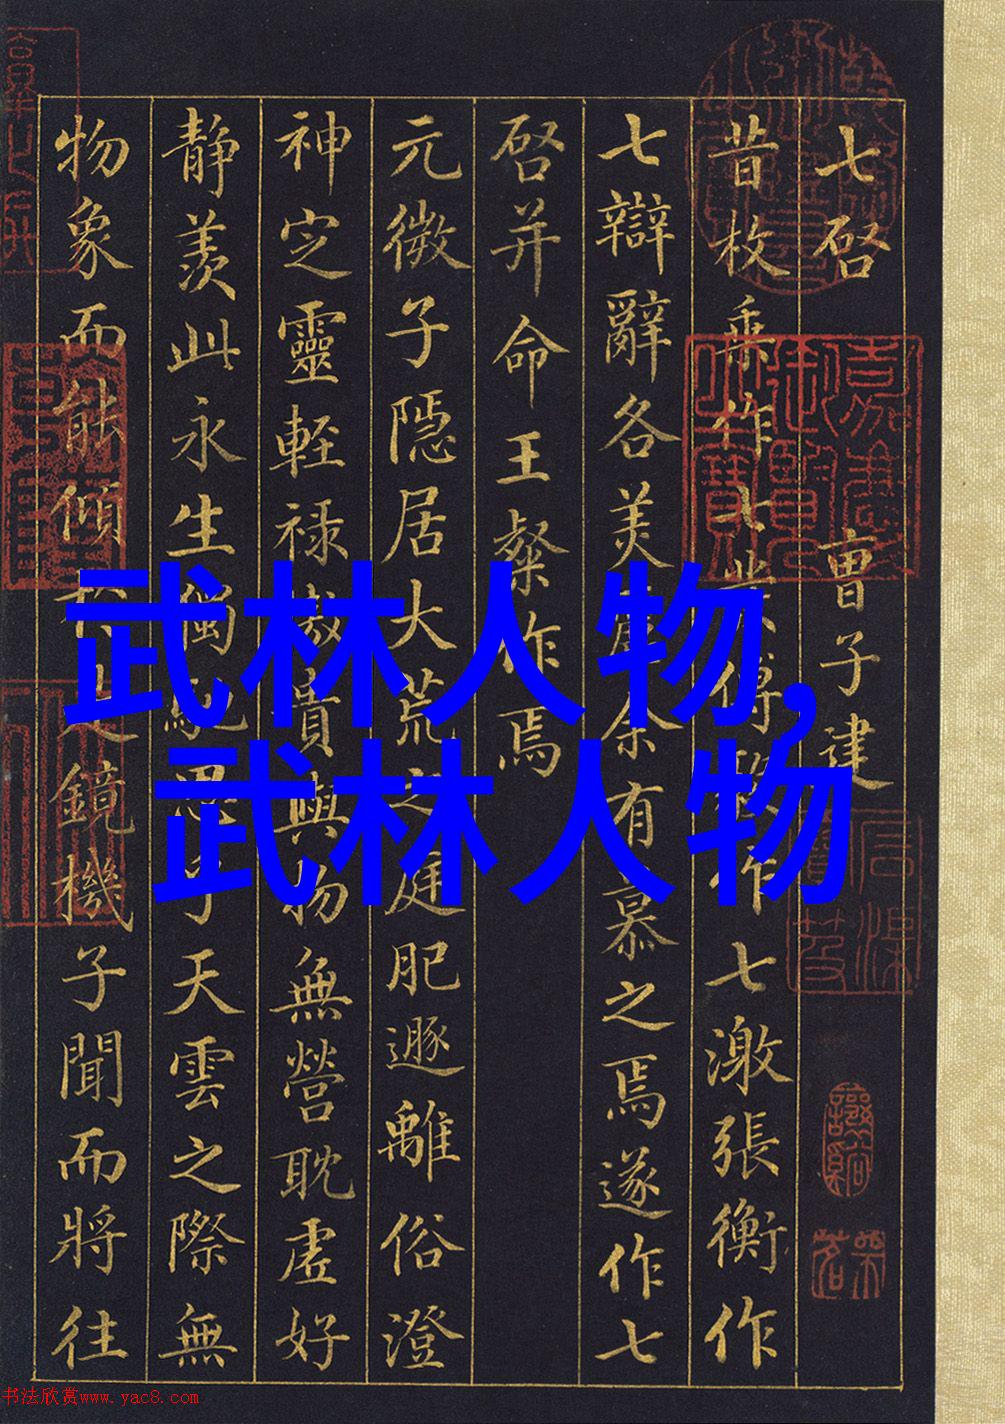 七啓 曹子建
昔枚乘作七發傅毅作七激張衡作
七辯辭各美麗余有慕之焉遂作七
啓并命王粲作焉
元微子隱居大荒之庭肥遯離俗澄
神定靈輕禄傲貴與物無營耽虛好
静羡此永生獨馳思乎天雲之際無
物象而能傾於是鏡機子聞而將往
武林人物,
武林人物
嘉慶御覽之寶
书法欣赏www.yac8.com